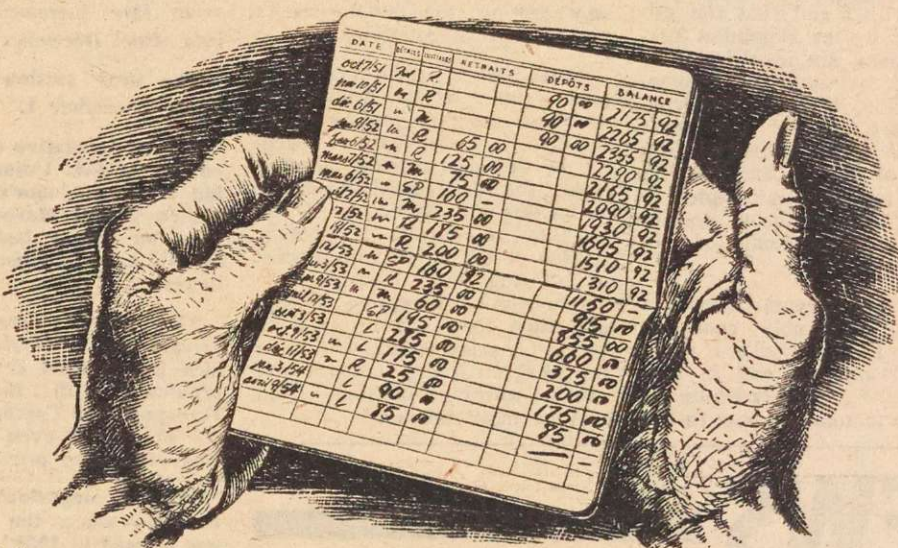 DATE DÉTAILS RETRAITS DÉPÔTS BALANCE
oct 7/51 R 90 00 2175 92
nov 10/51 " R 90 00 2265 92
déc 6/51 " m 90 00 2355 92
9/52 " R 65 00 2290 92
6/52 " R 125 00 2165 92
mars 7/52 " m 75 00 2090 92
6/52 " SP 160 - 1930 92
" m 235 00 1695 92
2/52 " R 185 00 1510 92
9/52 " R 200 00 1310 92
12/53 " SP 160 92 1150 -
3/53 " R 235 00 915 00
9/53 " m 60 00 855 00
SP 195 00 660 00
3/53 L 285 00 375 00
oct 9/53 " L 175 00 200 00
déc 11/53 " R 25 00 175 00
3/54 L 90 00 85 00
avril 9/54 " L 85 00 — -